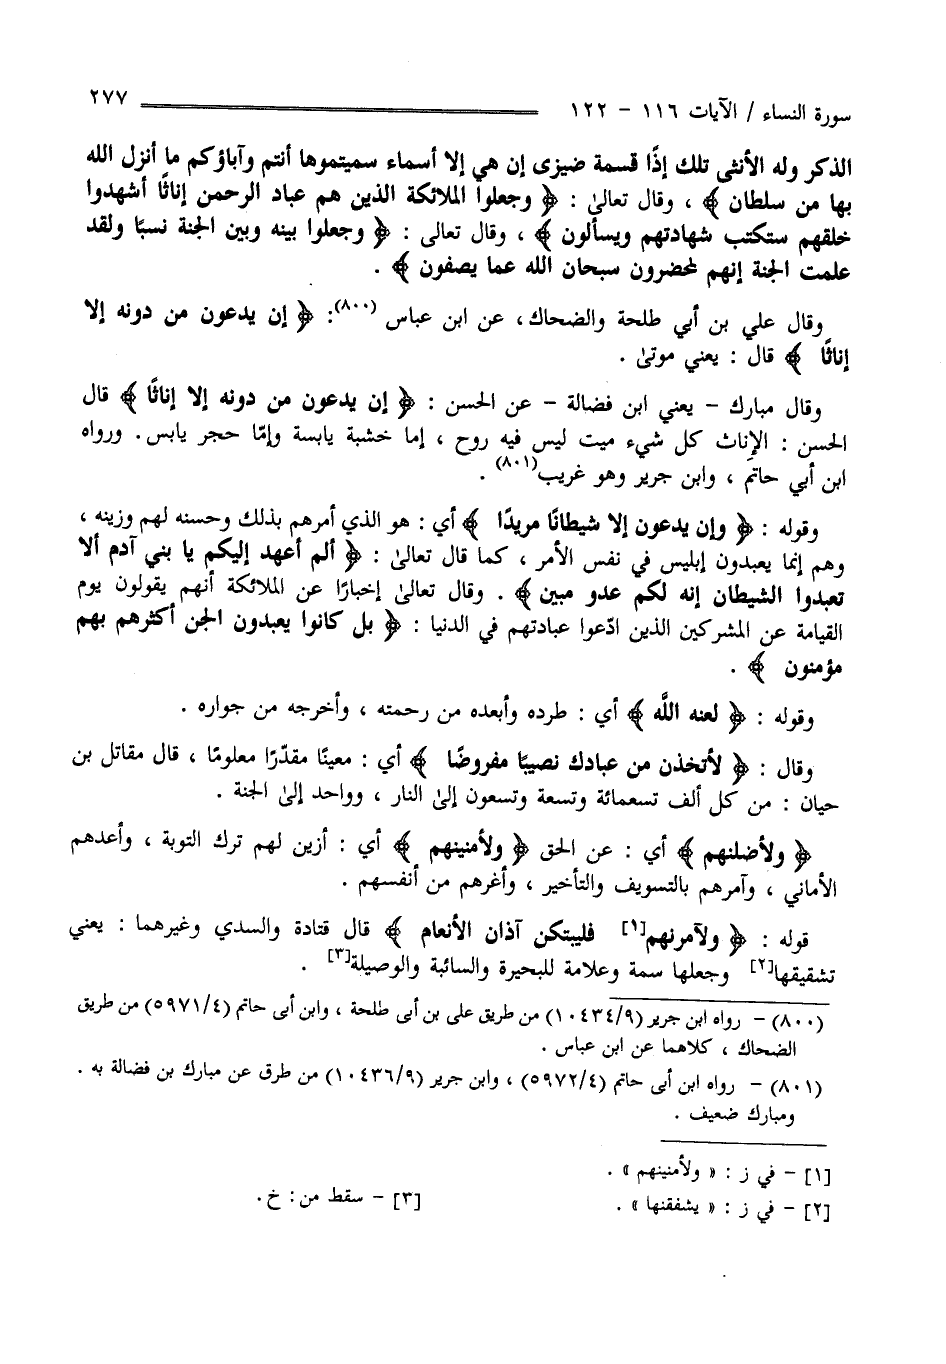 سورة النساء / الآيات ١١٦ - ١٢٢ ٢٧٧
الذكر وله الأنثى تلك إذًا قسمة ضيزى إن هي إلا أسماء سميتموها أنتم وآباؤكم ما أنزل الله
بها من سلطان ﴾ ، وقال تعالىٰ : ﴿ وجعلوا الملائكة الذين هم عباد الرحمن إناثًا أشهدوا
خلقهم ستكتب شهادتهم ويسألون ﴾ ، وقال تعالى : ﴿ وجعلوا بينه وبين الجنة نسبًا ولقد
علمت الجنة إنهم لمحضرون سبحان الله عما يصفون ﴾ .
وقال علي بن أبي طلحة والضحاك، عن ابن عباس (٨٠٠): ﴿ إن يدعون من دونه إلا
إناثًا ﴾ قال : يعني موتىٰ .
وقال مبارك - يعني ابن فضالة - عن الحسن : ﴿ إن يدعون من دونه إلا إناثًا ﴾ قال
الحسن : الإناث كل شيء ميت ليس فيه روح ، إما خشبة يابسة وإمّا حجر يابس. ورواه
ابن أبي حاتم ، وابن جرير وهو غريب(٨٠١) .
وقوله : ﴿ وإن يدعون إلا شيطانًا مريدًا ﴾ أي : هو الذي أمرهم بذلك وحسنه لهم وزينه ،
وهم إنما يعبدون إبليس في نفس الأمر ، كما قال تعالىٰ : ﴿ ألم أعهد إليكم يا بني آدم ألا
تعبدوا الشيطان إنه لكم عدو مبين ﴾ . وقال تعالىٰ إخبارًا عن الملائكة أنهم يقولون يوم
القيامة عن المشركين الذين ادّعوا عبادتهم في الدنيا : ﴿ بل كانوا يعبدون الجن أكثرهم بهم
مؤمنون ﴾ .
وقوله : ﴿ لعنه اللَّه ﴾ أي : طرده وأبعده من رحمته ، وأخرجه من جواره .
وقال : ﴿ لأتخذن من عبادك نصيبًا مفروضًا ﴾ أي : معينًا مقدّرًا معلومًا ، قال مقاتل بن
حيان : من كل ألف تسعمائة وتسعة وتسعون إلىٰ النار ، وواحد إلىٰ الجنة .
﴿ ولأضلنهم ﴾ أي : عن الحق ﴿ ولأمنينهم ﴾ أي : أزين لهم ترك التوبة ، وأعدهم
الأماني ، وآمرهم بالتسويف والتأخير ، وأغرهم من أنفسهم .
قوله : ﴿ ولآمرنهم[١] فليبتكن آذان الأنعام ﴾ قال قتادة والسدي وغيرهما : يعني
تشقيقها[٢] وجعلها سمة وعلامة للبحيرة والسائبة والوصيلة[٣] .
(٨٠٠) - رواه ابن جرير (١٠٤٣٤/٩) من طريق على بن أبى طلحة ، وابن أبى حاتم (٥٩٧١/٤) من طريق
الضحاك ، كلاهما عن ابن عباس .
(٨٠١) - رواه ابن أبى حاتم (٥٩٧٢/٤) ، وابن جرير (١٠٤٣٦/٩) من طرق عن مبارك بن فضالة به .
ومبارك ضعيف .
[١] - في ز : « ولأمنينهم » .
[٢] - في ز : « يشققنها » . [٣] - سقط من: خ.